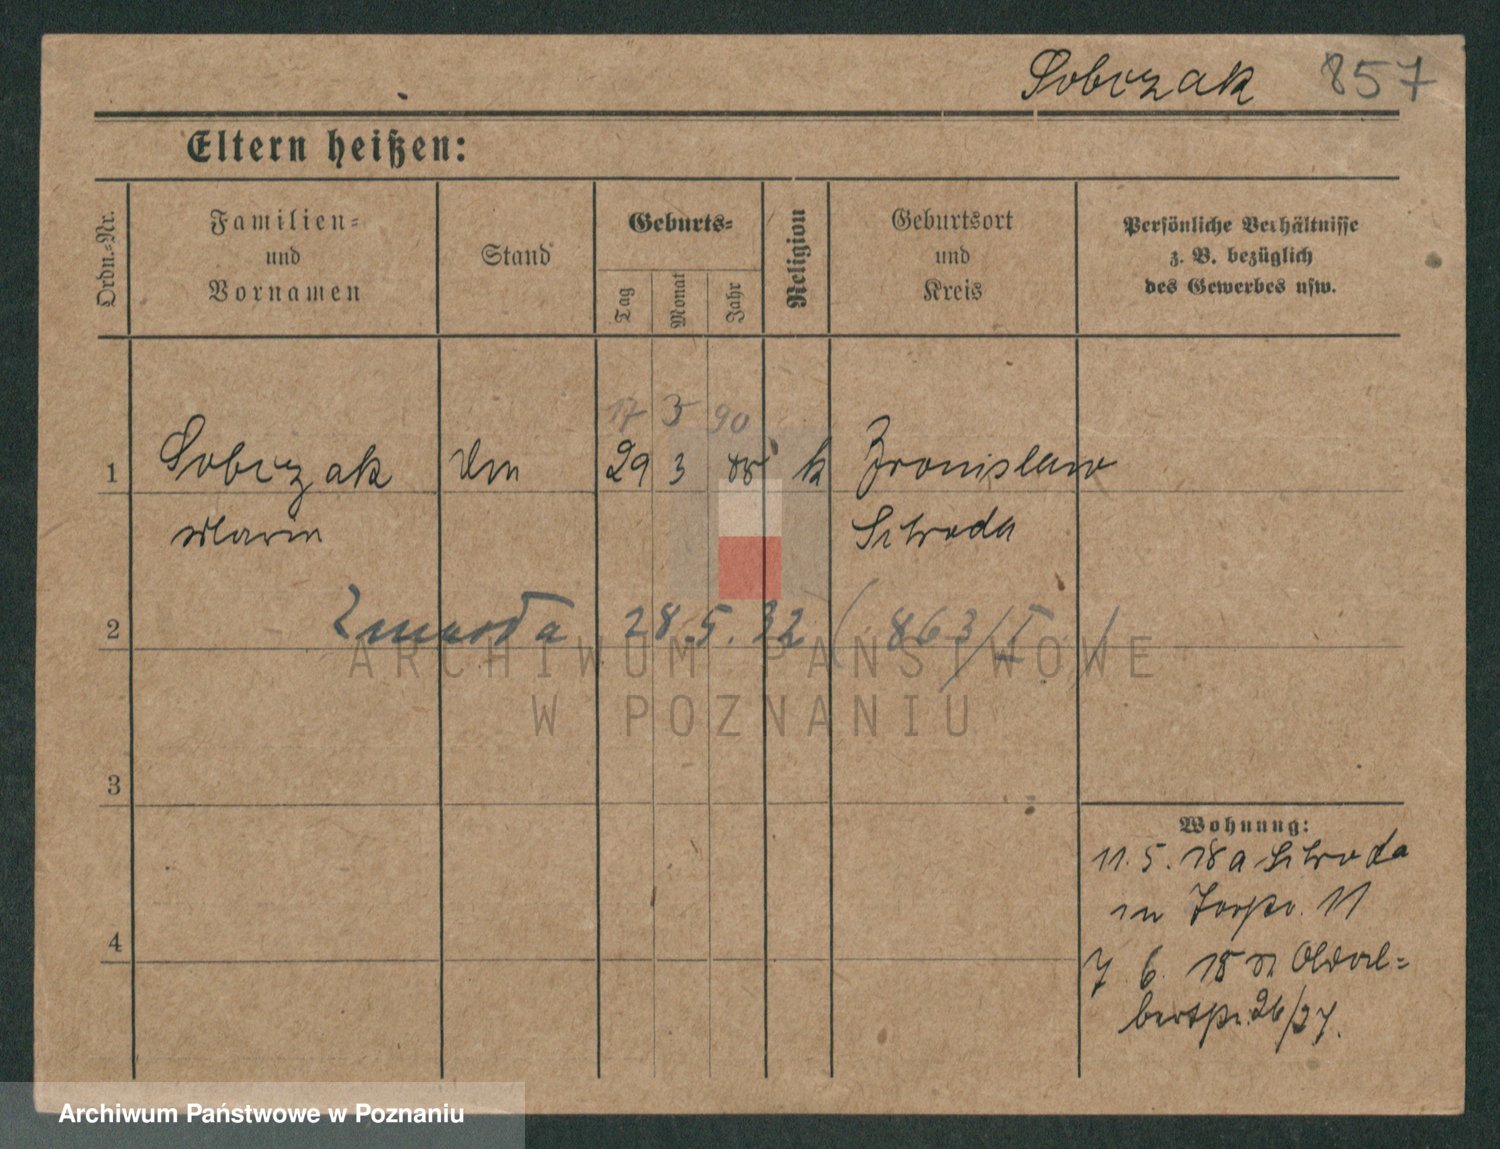 Sobczak 857
Eltern heißen:
Ordn.-Nr.
Familien-
und
Vornamen
Stand
Geburts-
Tag
Monat
Jahr
Religion
Geburtsort
und
Kreis
Persönliche Verhältnisse
z. B. bezüglich
des Gewerbes usw.
17 3 90
1 Sobczak 29 3 88 k Bronislaw
Maria Schroda
2 Zmarła 28.5.32 (863/I)
ARCHIWUM PAŃSTWOWE
W POZNANIU
3
Wohnung:
11. 5. 18 a Schroda
in Torstr. 11
4
7 6. 18 n Oldal-
bertstr. 26/27.
Archiwum Państwowe w Poznaniu